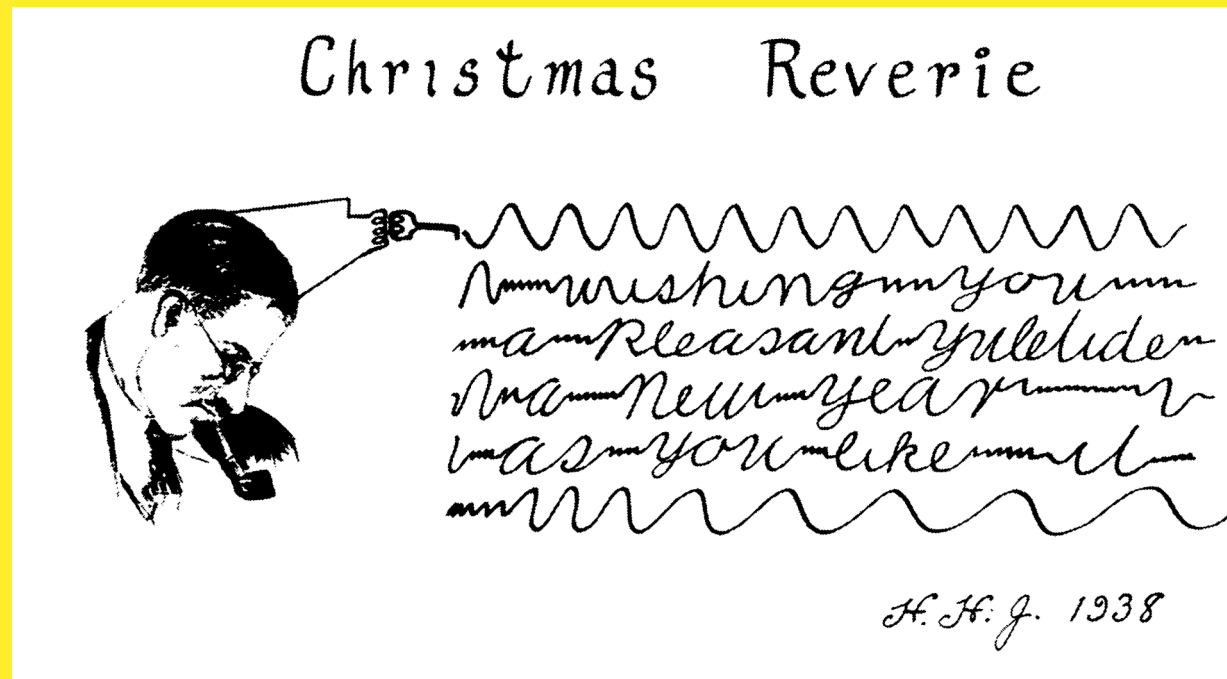 Christmas Reverie
wishing you
a pleasant yuletide
a New year
as you like it
H. H. J. 1938